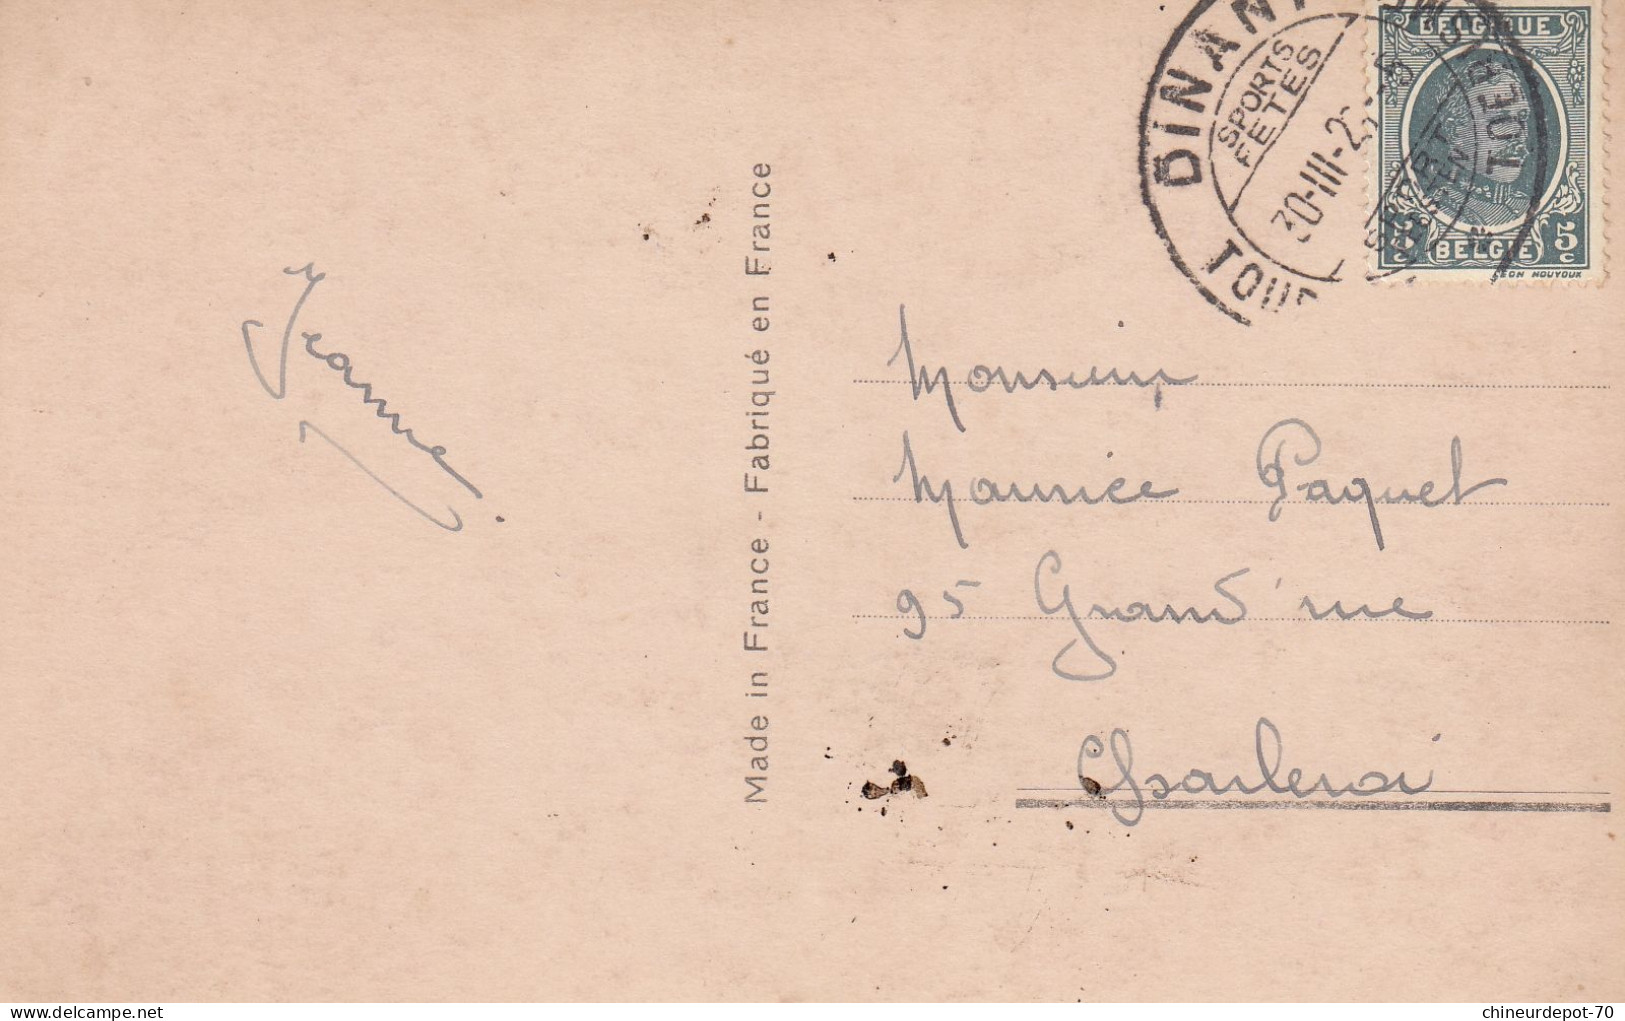 DINANT
SPORTS
FETES
30-III-2
TOUR
SPORT
TOER
BELGIQUE
5 5
c c
BELGIË
LEON HOUYOUX
Jeanne
Made in France - Fabriqué en France
Monsieur
Maurice Paquet
95 Grand'rue
Charleroi
delcampe.net
chineurdepot-70